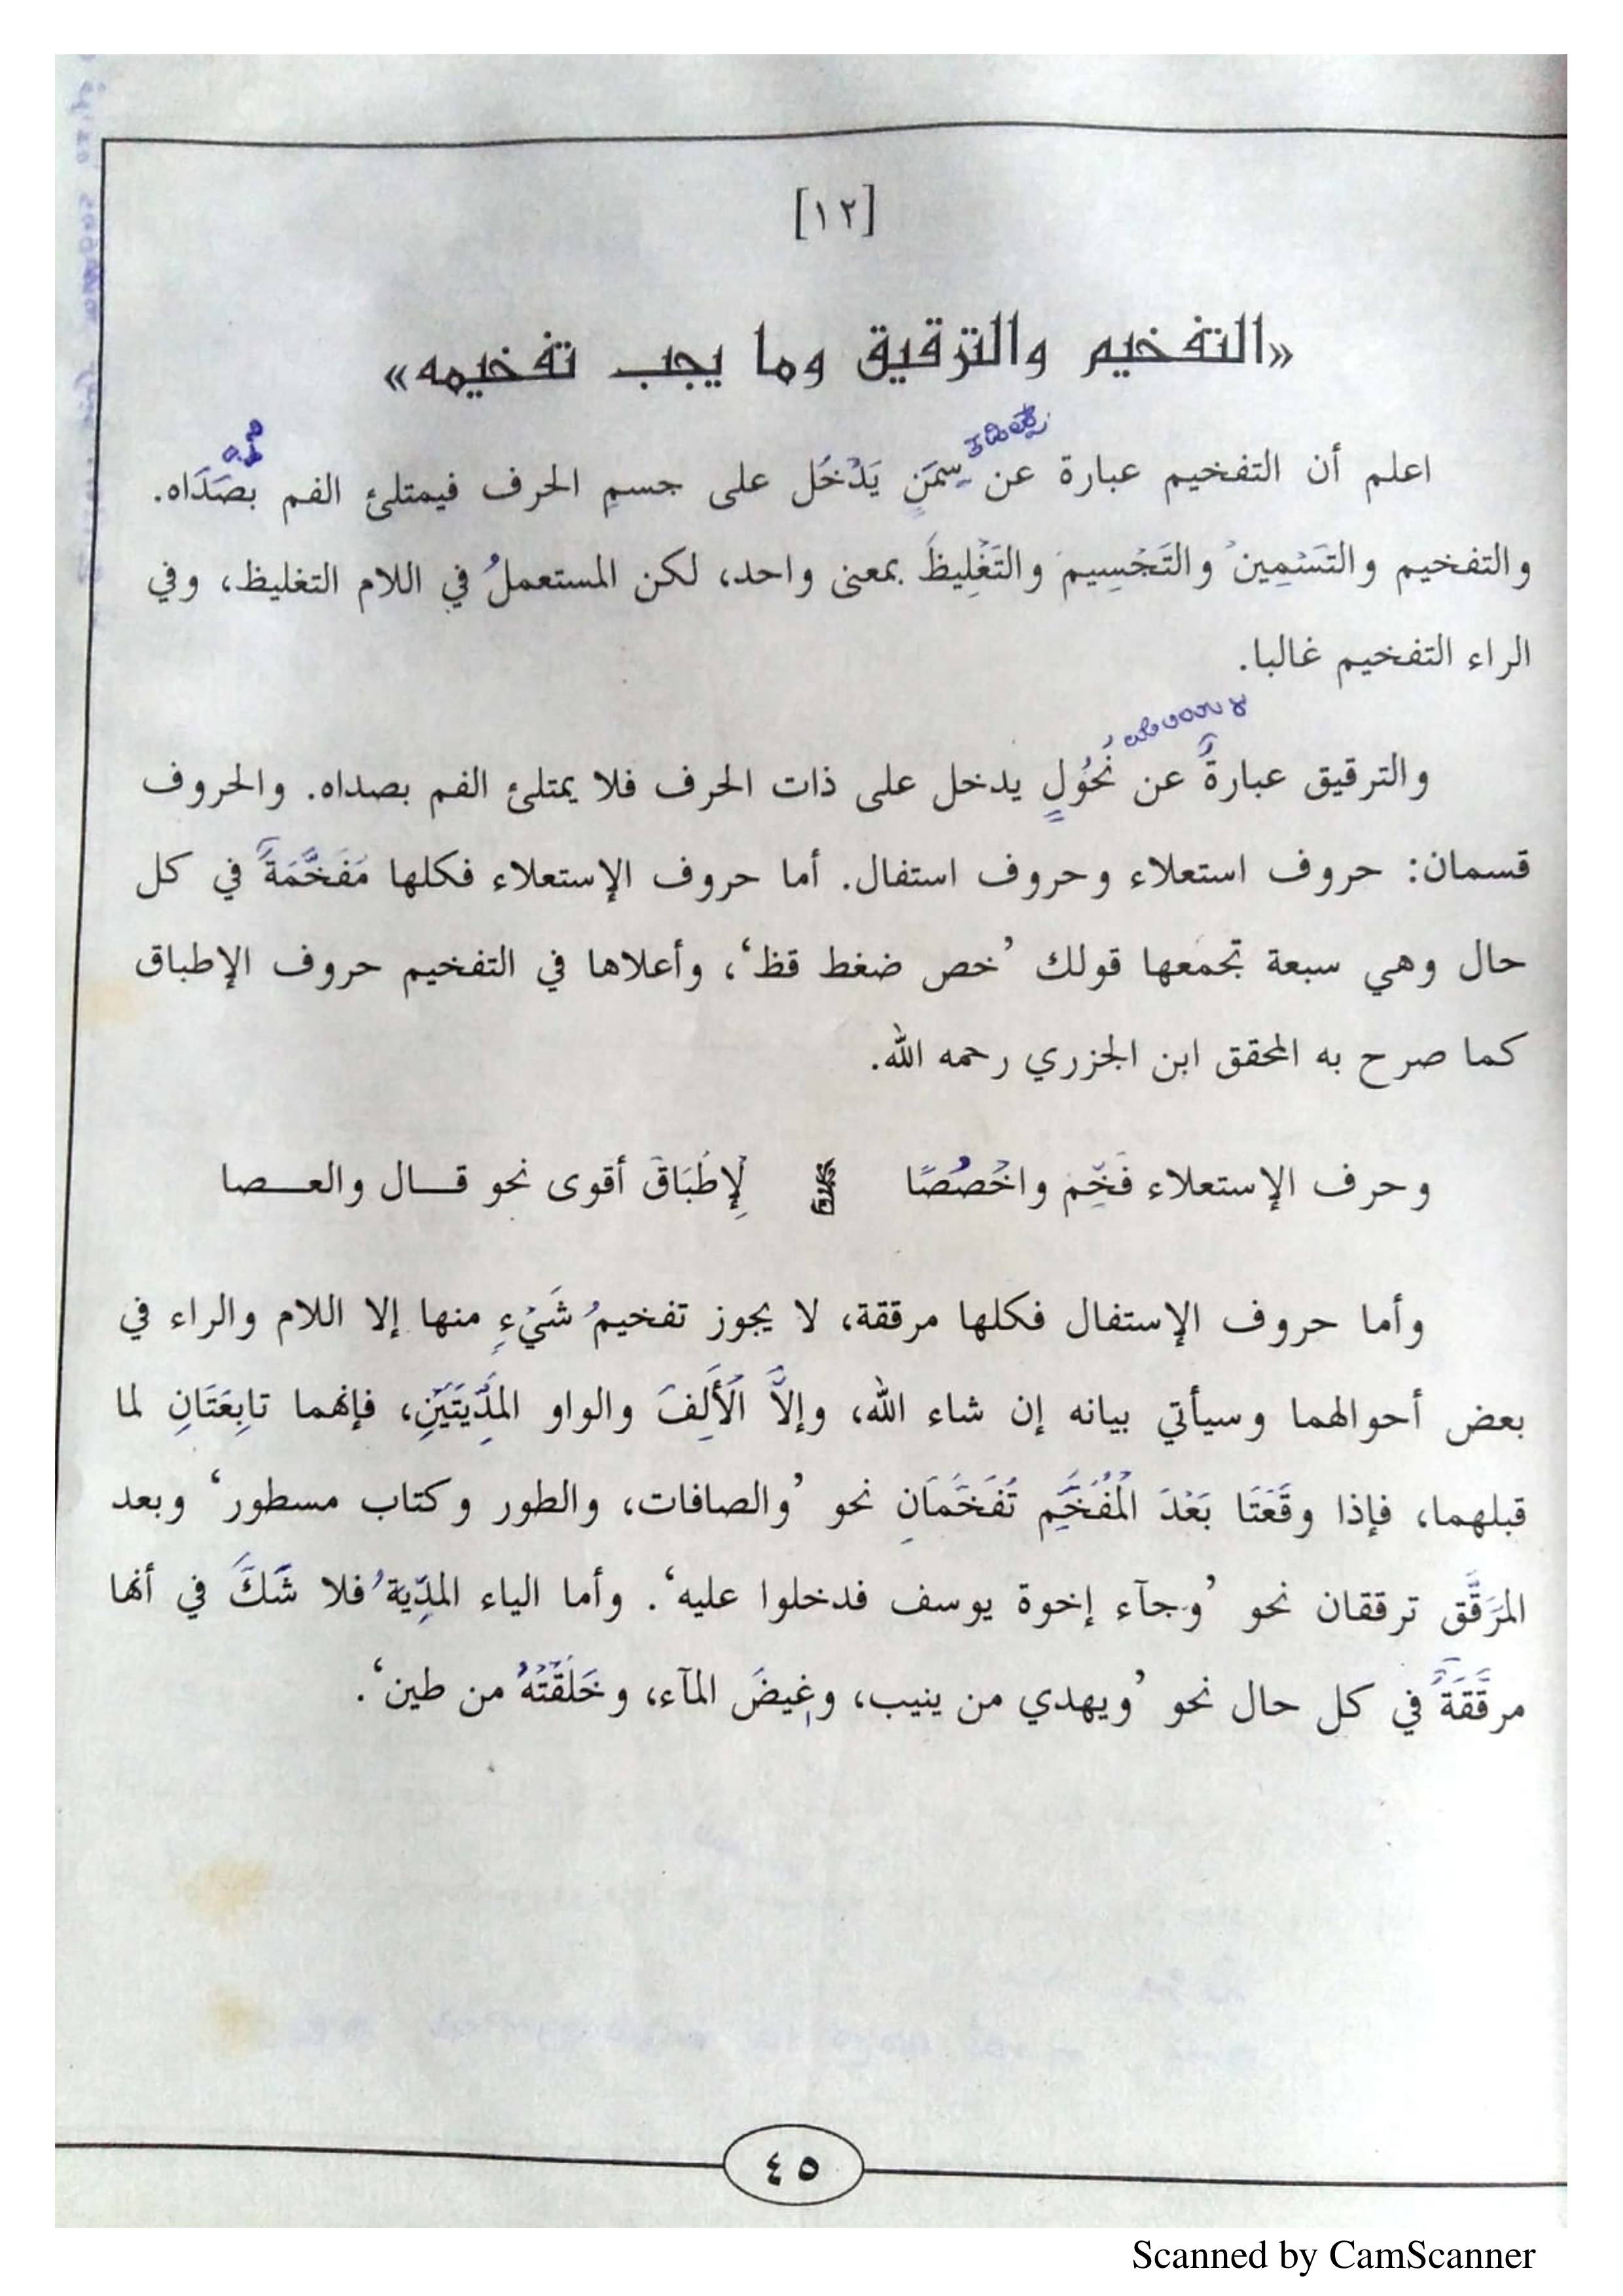 [١٢]
«التفخيم والترقيق وما يجب تفخيمه»
اعلم أن التفخيم عبارة عن سِمَنٍ يَدْخُل على جسمِ الحرف فيمتلئ الفم بصَدَاه.
والتفخيم والتَسْمِين والتَجْسِيم والتَغْلِيظَ بمعنى واحد، لكن المستعملُ في اللام التغليظ، وفي
الراء التفخيم غالبا.
والترقيق عبارةٌ عن نُحُولٍ يدخل على ذات الحرف فلا يمتلئ الفم بصداه. والحروف
قسمان: حروف استعلاء وحروف استفال. أما حروف الإستعلاء فكلها مُفَخَّمَةٌ في كل
حال وهي سبعة تجمعها قولك ’خص ضغط قظ‘، وأعلاها في التفخيم حروف الإطباق
كما صرح به المحقق ابن الجزري رحمه الله.
وحرف الإستعلاء فَخِّم واخْصُصًا لِإطْبَاقَ أقوى نحو قـــال والعـــصا
وأما حروف الإستفال فكلها مرققة، لا يجوز تفخيمُ شَيْءٍ منها إلا اللام والراء في
بعض أحوالهما وسيأتي بيانه إن شاء الله، وإلاَّ الَأَلِفَ والواو المَدِّيَتَيْنِ، فإنهما تابِعَتَانِ لما
قبلهما، فإذا وقَعَتَا بَعْدَ الْمُفَخَّمِ تُفَخَّمَانِ نحو ’والصافات، والطور وكتاب مسطور‘ وبعد
المرَقَّق ترققان نحو ’وجآء إخوة يوسف فدخلوا عليه‘. وأما الياء المدِّيَةُ فلا شَكَّ في أنها
مرقَّقَةٌ في كل حال نحو ’ويهدي من ينيب، وغِيضَ المآء، وخَلَقْتَهُ من طين‘.
٤٥
Scanned by CamScanner